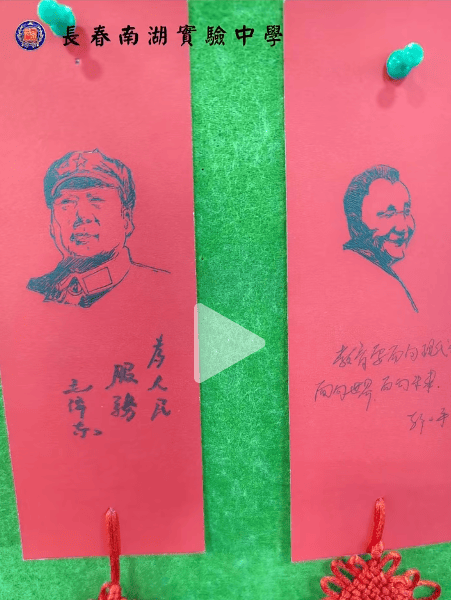 長春南湖實驗中學
為人民
服務
毛澤东
教育要面向现代
面向世界 面向未来.
邓小平